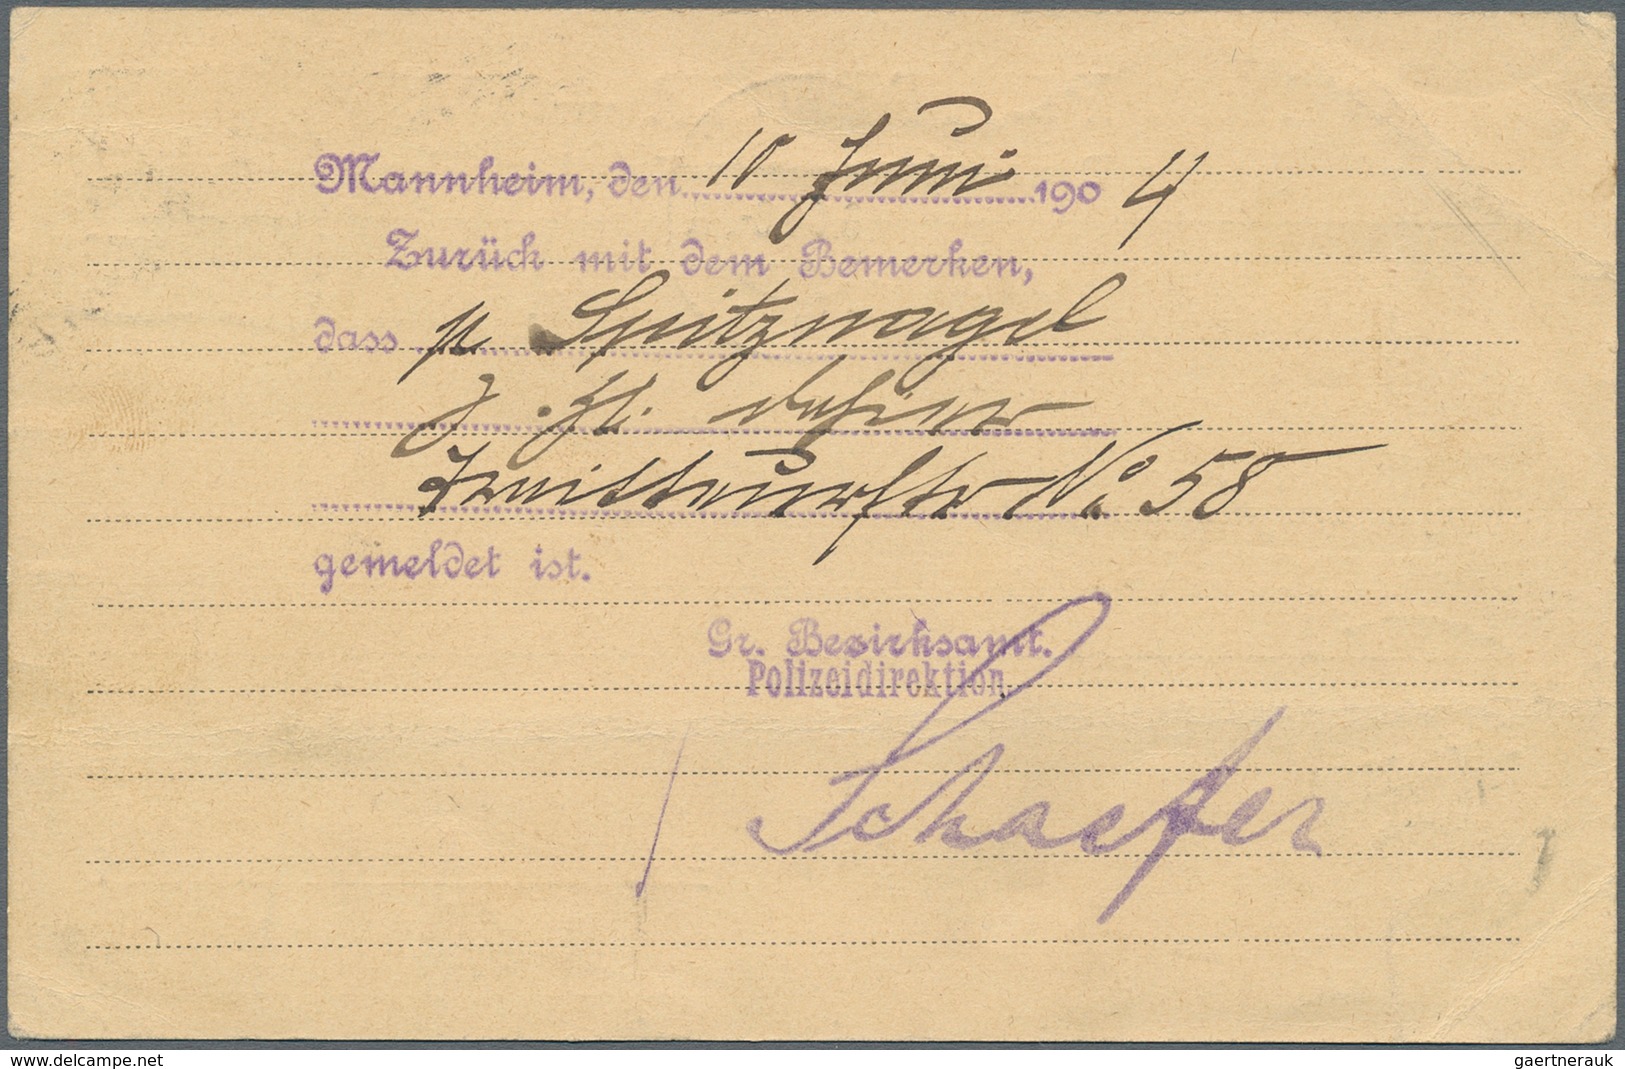 Mannheim, den 10 Juni 1904
Zurück mit dem Bemerken,
dass p Spitznagel
z. Zt. dahier
Traitteurstr No 58
gemeldet ist.
Gr. Bezirksamt.
Polizeidirektion
Schaefer
www.delcampe.net
gaertnerauk